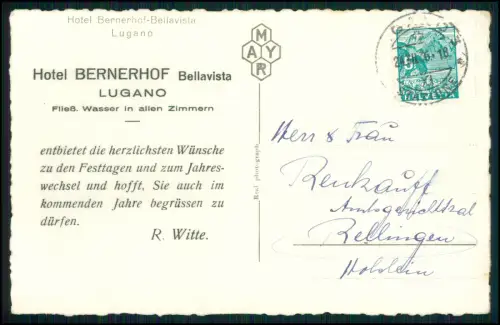 Hotel Bernerhof-Bellavista
Lugano
Hotel BERNERHOF Bellavista
LUGANO
Fließ. Wasser in allen Zimmern
entbietet die herzlichsten Wünsche
zu den Festtagen und zum Jahres-
wechsel und hofft, Sie auch im
kommenden Jahre begrüssen zu
dürfen.
R. Witte.
MAYR
Real photograph
Herr & Frau
Renkauff
Amtsgerichtsrat
Rellingen
Holstein